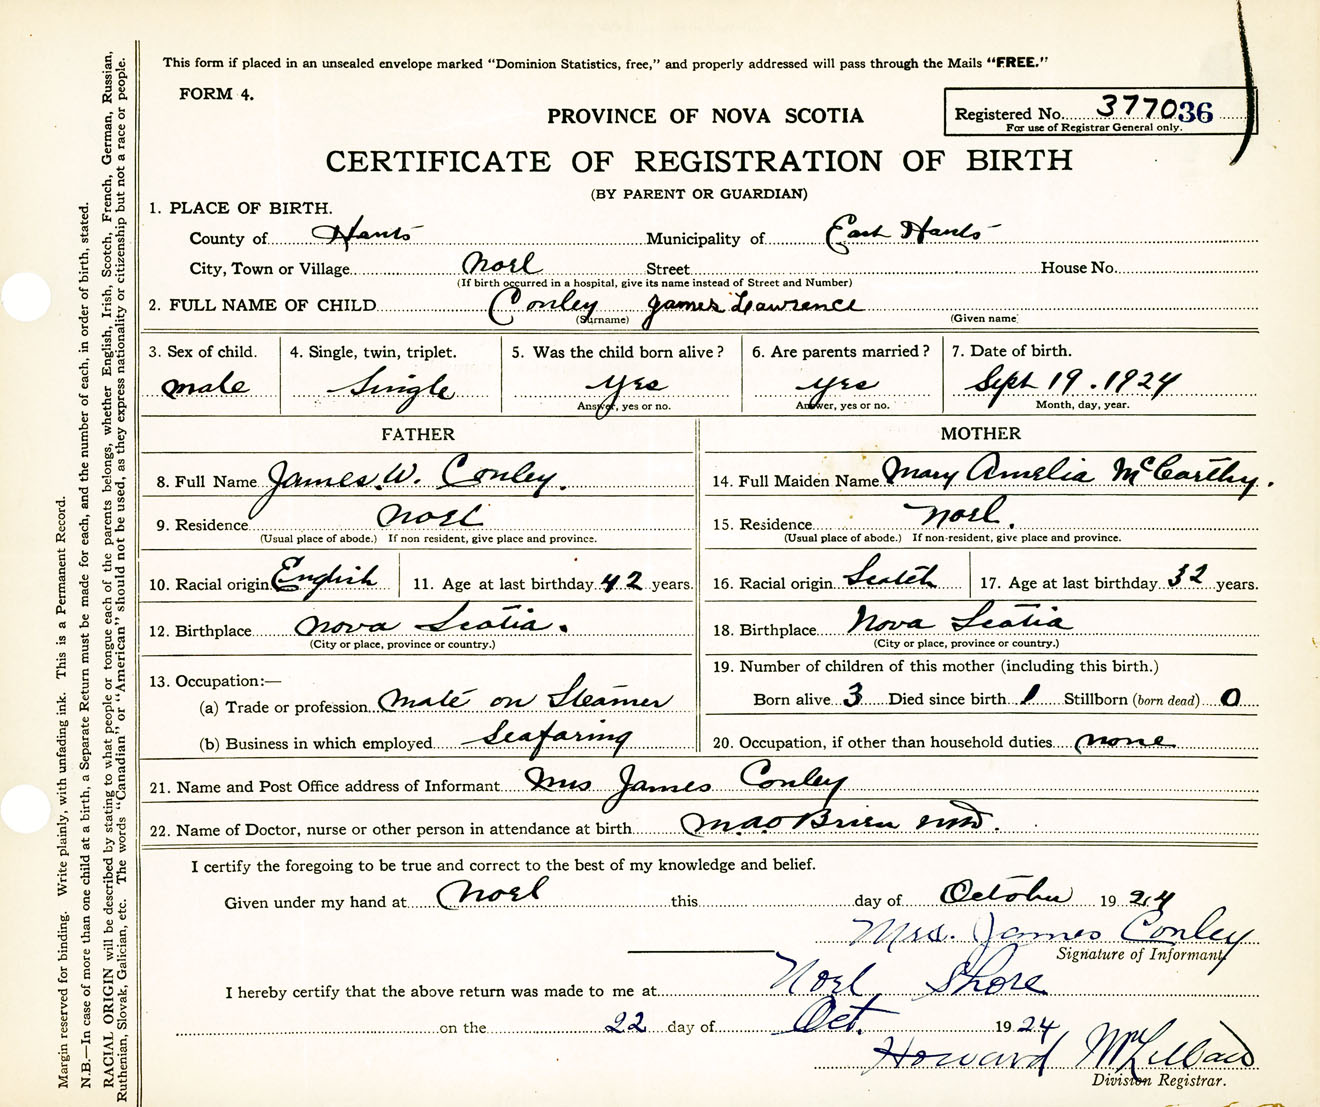 This form if placed in an unsealed envelope marked "Dominion Statistics, free," and properly addressed will pass through the Mails "FREE."
FORM 4.
PROVINCE OF NOVA SCOTIA
Registered No. 377036
For use of Registrar General only.
CERTIFICATE OF REGISTRATION OF BIRTH
(BY PARENT OR GUARDIAN)
1. PLACE OF BIRTH.
County of Hants Municipality of East Hants
City, Town or Village Noel Street House No.
(If birth occurred in a hospital, give its name instead of Street and Number)
2. FULL NAME OF CHILD Conley James Lawrence
(Surname) (Given name)
3. Sex of child. 4. Single, twin, triplet. 5. Was the child born alive? 6. Are parents married? 7. Date of birth.
male Single yes yes Sept 19. 1924
Answer, yes or no. Answer, yes or no. Month, day, year.
FATHER MOTHER
8. Full Name James. W. Conley. 14. Full Maiden Name Mary Amelia McCarthy.
9. Residence Noel 15. Residence Noel.
(Usual place of abode.) If non resident, give place and province. (Usual place of abode.) If non-resident, give place and province.
10. Racial origin English 11. Age at last birthday 42 years. 16. Racial origin Scotch 17. Age at last birthday 32 years.
12. Birthplace Nova Scotia. 18. Birthplace Nova Scotia
(City or place, province or country.) (City or place, province or country.)
13. Occupation:— 19. Number of children of this mother (including this birth.)
(a) Trade or profession mate on Steamer Born alive 3 Died since birth 1 Stillborn (born dead) 0
(b) Business in which employed Seafaring 20. Occupation, if other than household duties none
21. Name and Post Office address of Informant Mrs James Conley
22. Name of Doctor, nurse or other person in attendance at birth O'Brien M.D.
I certify the foregoing to be true and correct to the best of my knowledge and belief.
Given under my hand at Noel this day of October 1924
Mrs. James Conley
Signature of Informant
I hereby certify that the above return was made to me at Noel Shore
on the 22 day of Oct. 1924
Howard
Division Registrar.
Margin reserved for binding. Write plainly, with unfading ink. This is a Permanent Record.
N.B.—In case of more than one child at a birth, a Separate Return must be made for each, and the number of each, in order of birth, stated.
RACIAL ORIGIN will be described by stating to what people or tongue each of the parents belongs, whether English, Irish, Scotch, French, German, Russian,
Ruthenian, Slovak, Galician, etc. The words "Canadian" or "American" should not be used, as they express nationality or citizenship but not a race or people.